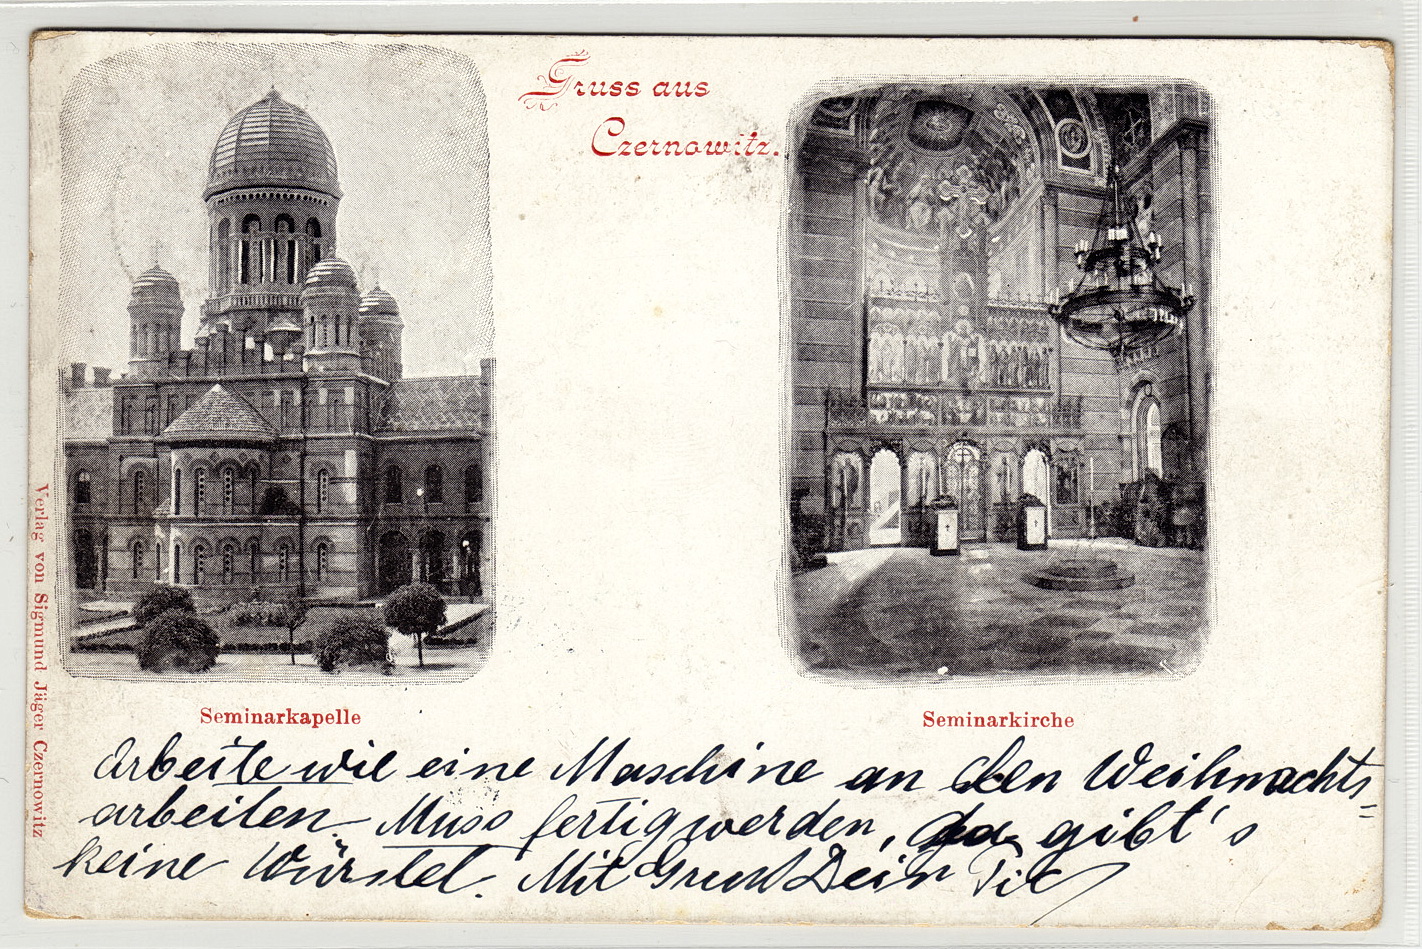 Gruss aus
Czernowitz.
Seminarkapelle
Seminarkirche
Verlag von Sigmund Jäger Czernowitz
Arbeite wie eine Maschine an den Weihnachts-
arbeiten. Muss fertig werden, da gibt's
keine Würstel. Mit Gruss Dein